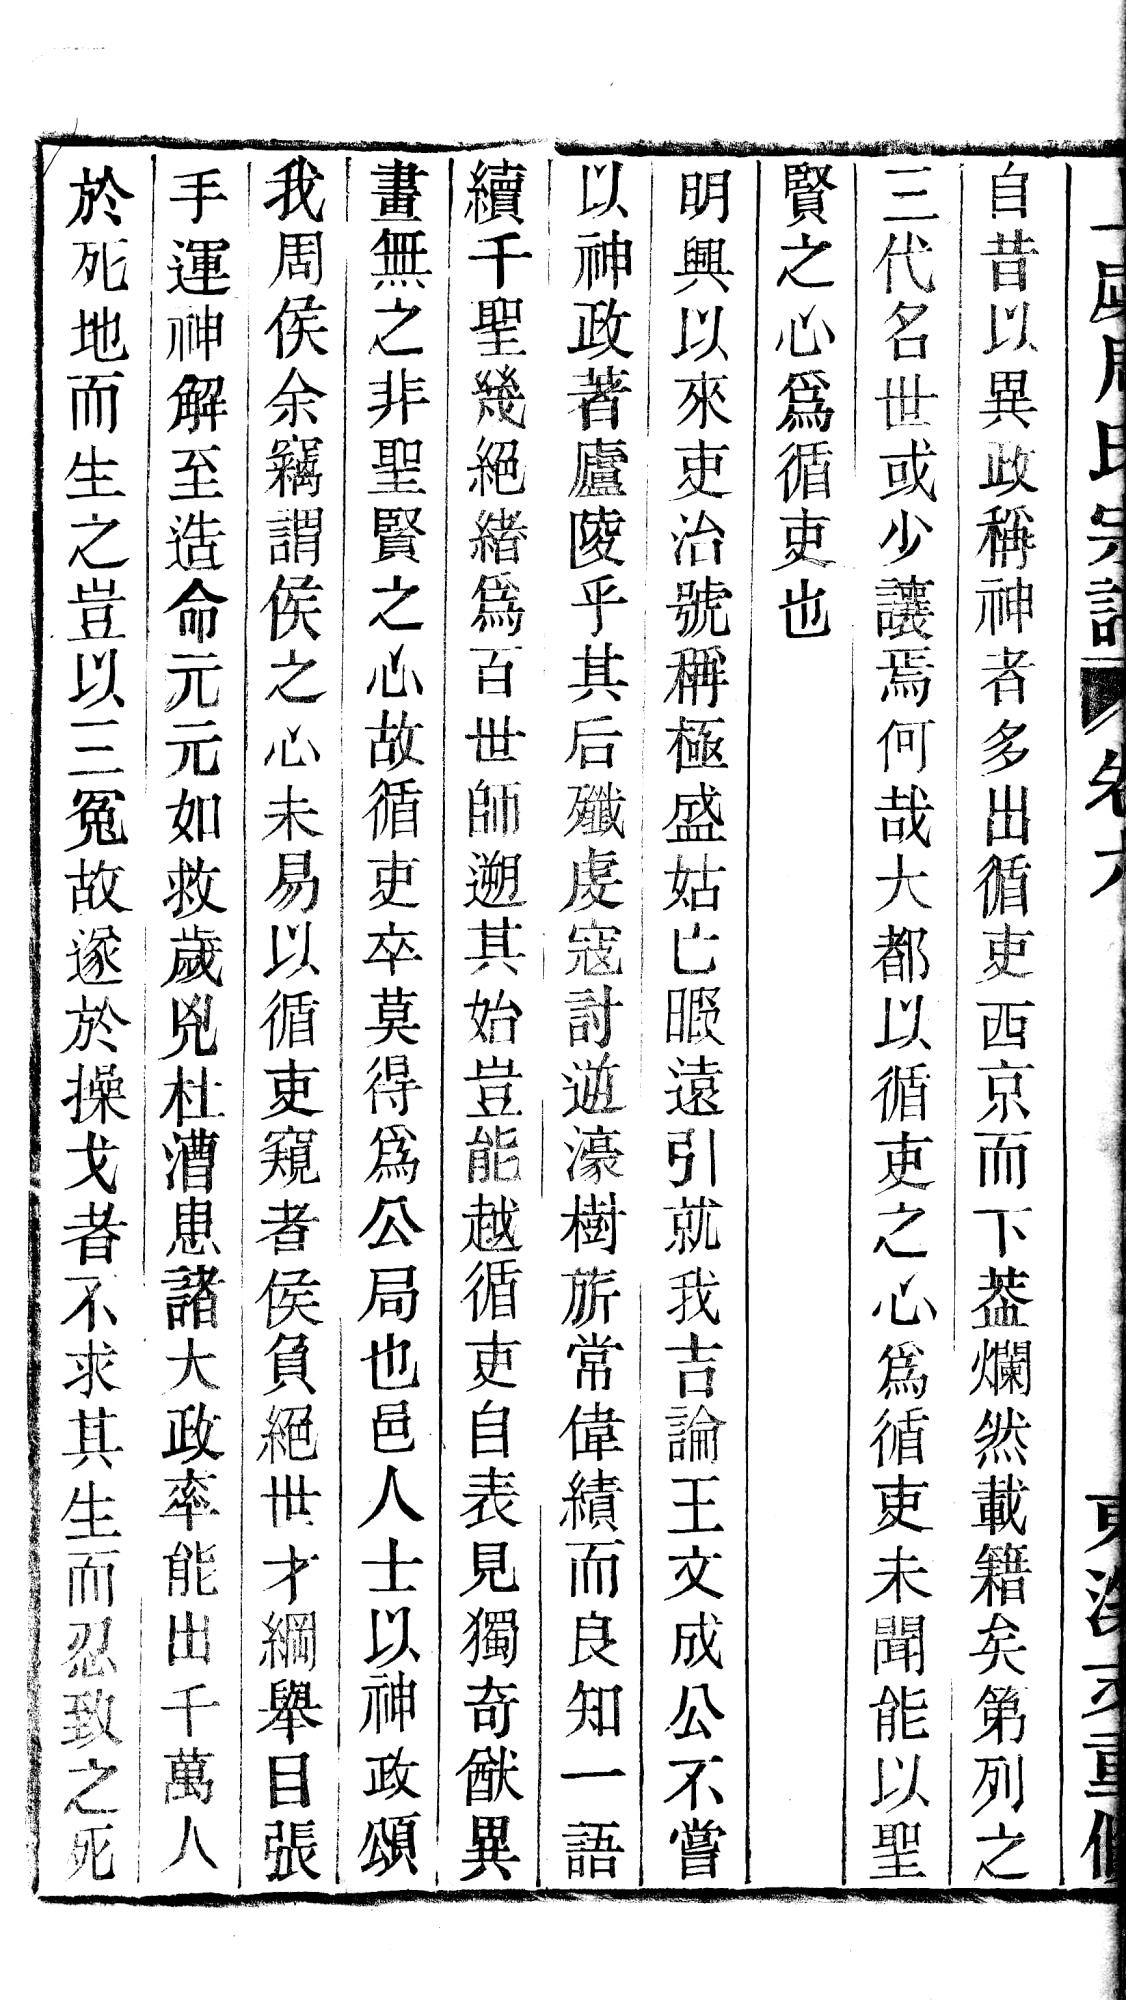 周氏宗譜 卷六
自昔以異政稱神者多出循吏西京而下葢爛然載籍矣第列之
三代名世或少讓焉何哉大都以循吏之心爲循吏未聞能以聖
賢之心爲循吏也
明興以來吏治號稱極盛姑亡暇遠引就我吉論王文成公不嘗
以神政著廬陵乎其后殲虔寇討逆濠樹旂常偉績而良知一語
續千聖幾絕緒爲百世師遡其始豈能越循吏自表見獨奇猷異
畫無之非聖賢之心故循吏卒莫得爲公局也邑人士以神政頌
我周侯余竊謂侯之心未易以循吏窺者侯負絕世才綱舉目張
手運神解至造命元元如救歲兇杜漕患諸大政率能出千萬人
於死地而生之豈以三冤故遂於操戈者不求其生而忍致之死